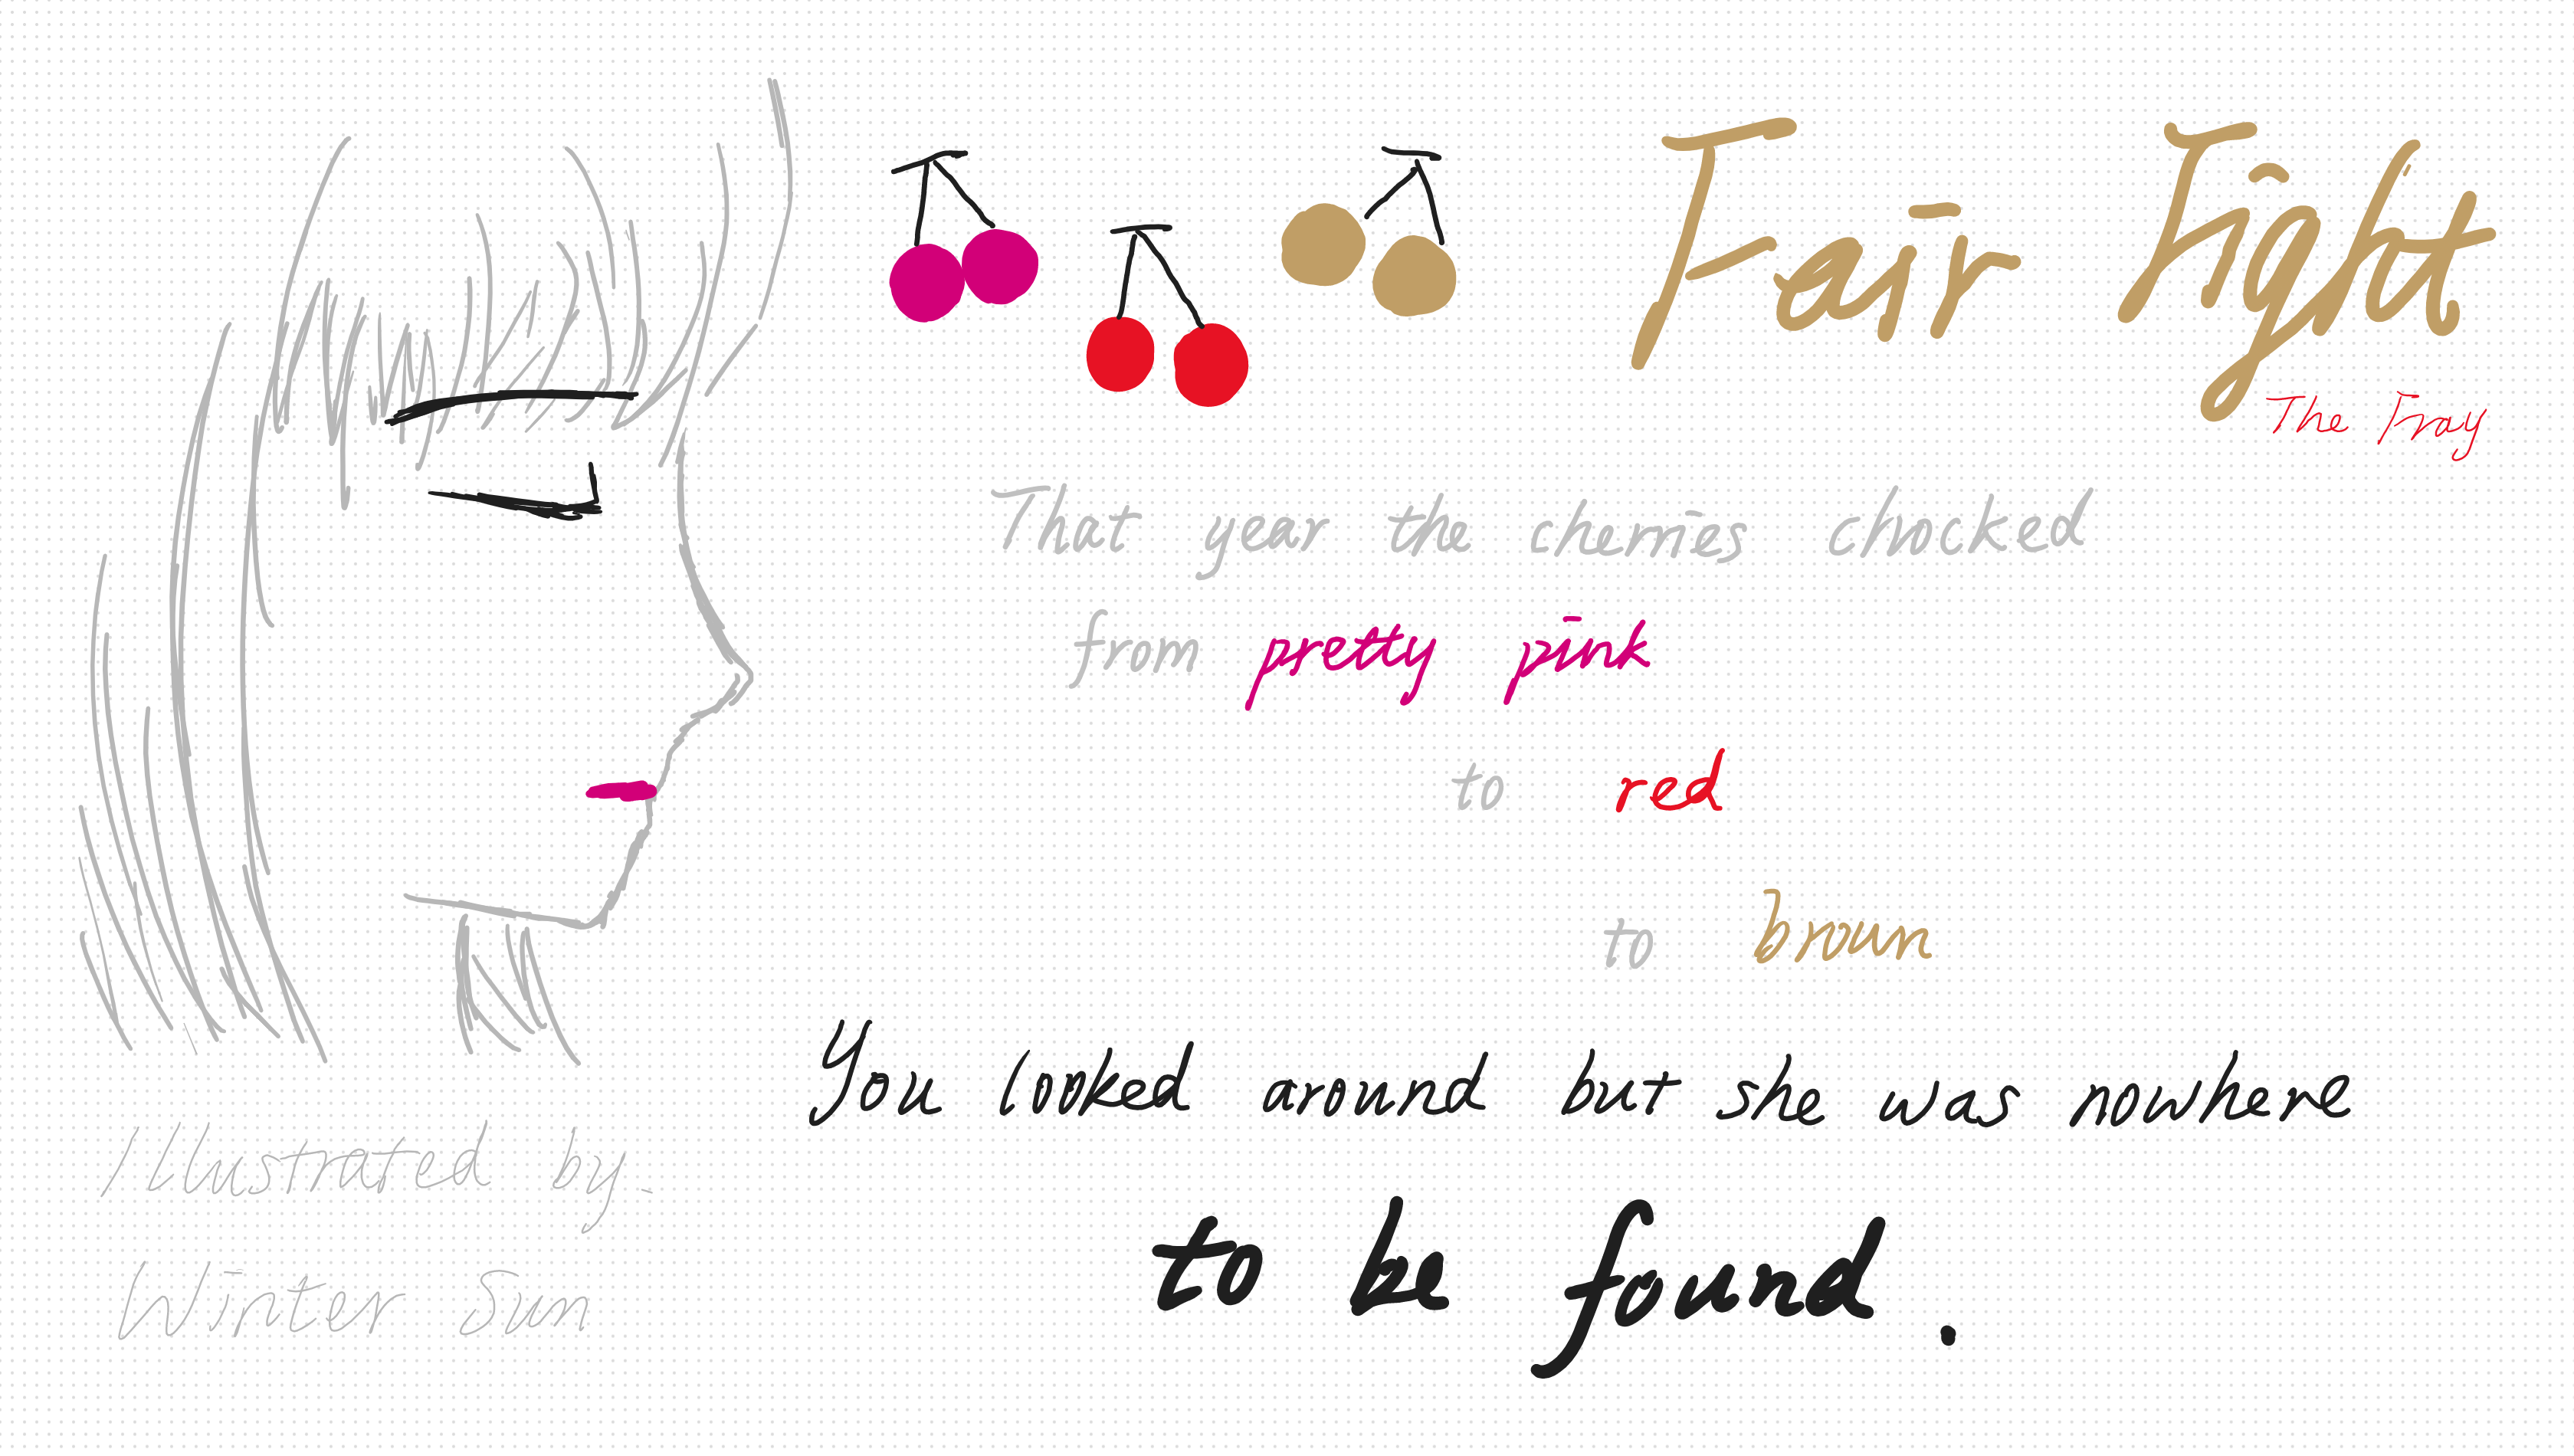 Fair Fight
The Fray
That year the cherries chocked
from pretty pink
to red
to brown
You looked around but she was nowhere
to be found.
Illustrated by.
Winter Sun